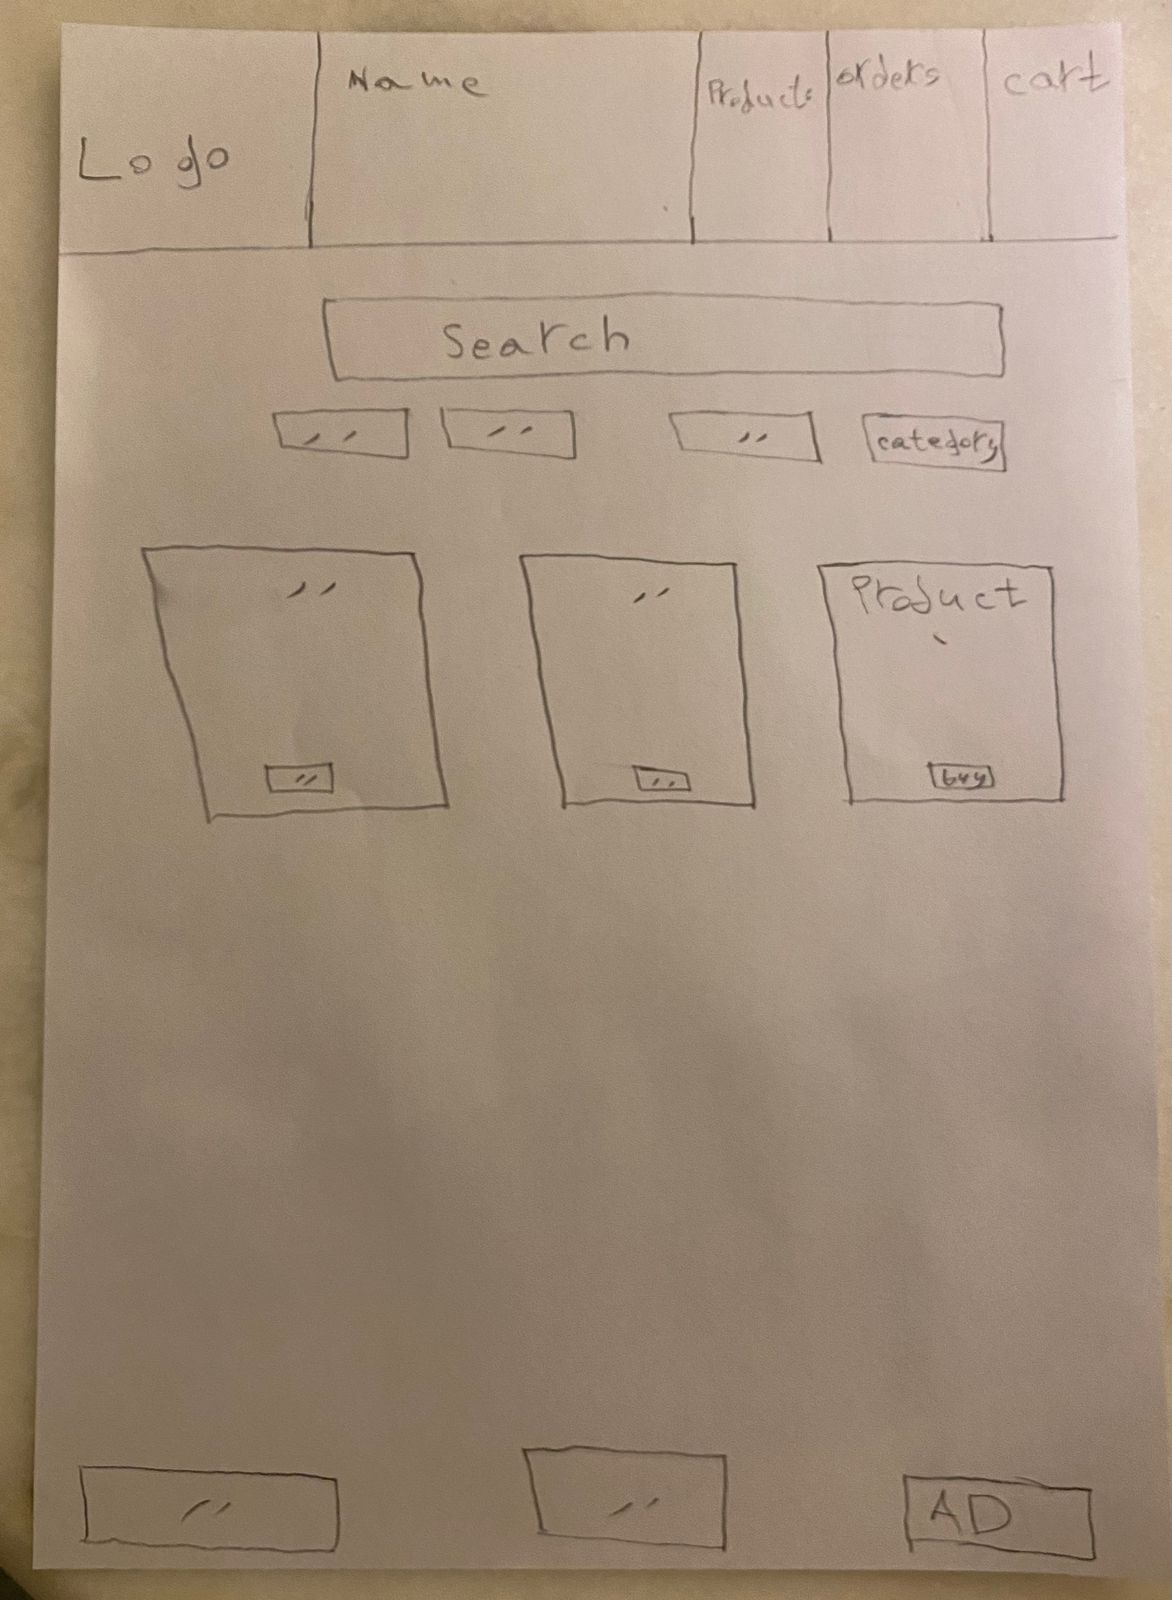 Logo
Name
Products
orders
cart
Search
〃 〃 〃 category
〃 〃 Product
〃 〃 buy
〃 〃 AD